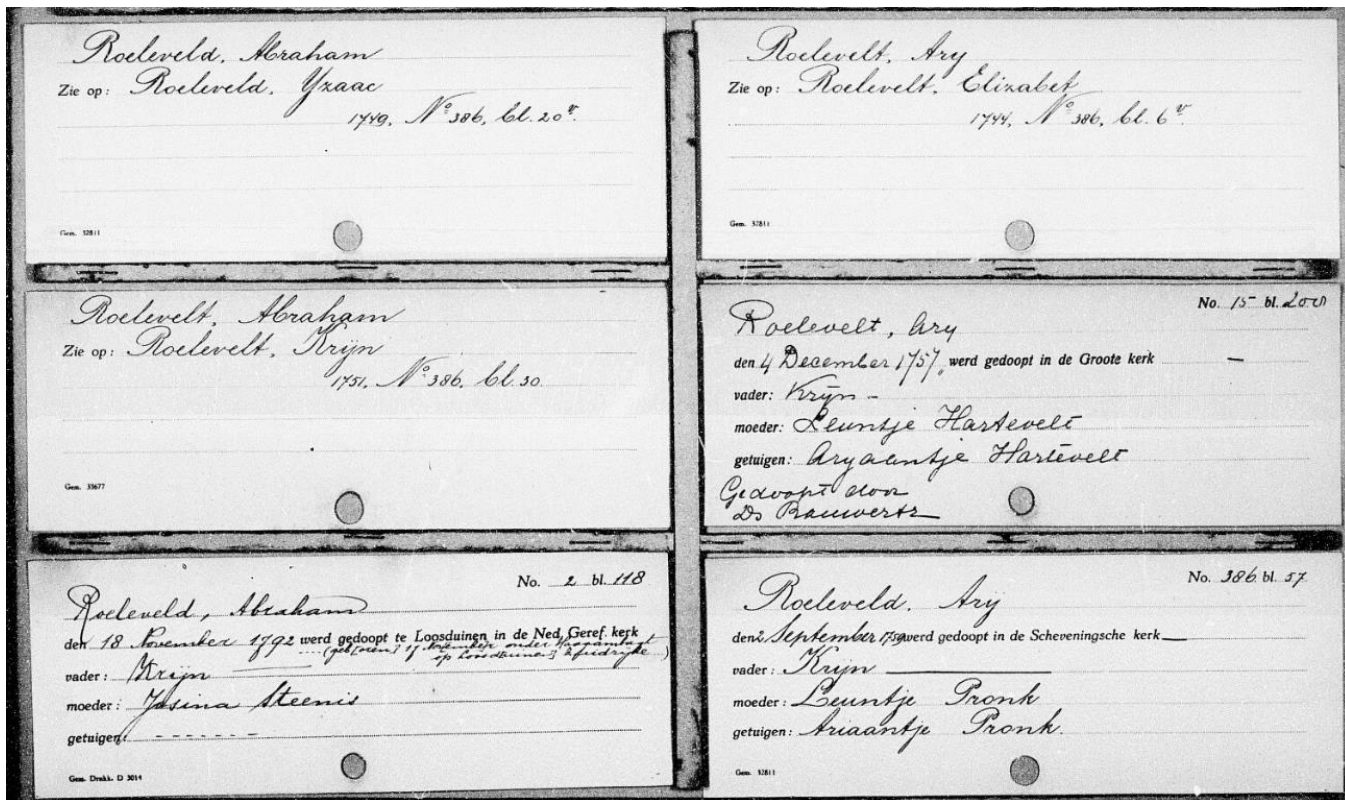 Roeleveld, Abraham
Zie op: Roeleveld, Yzaac
1749. No 386, bl. 20v.
Gem. 32811
Roelevelt, Abraham
Zie op: Roelevelt, Krijn
1751. No 386, bl. 30
Gem. 33677
No. 2 bl. 118
Roeleveld, Abraham
den 18 November 1792 werd gedoopt te Loosduinen in de Ned. Geref. kerk
(geb[oren] 17 November onder
op Loosduinen]
vader: Krijn
moeder: Jasina Steenis
getuigen: - - - - - - -
Gem. Drukk. D 3014
Roelevelt, Ary
Zie op: Roelevelt, Elizabet
1744, No 386, bl. 6v.
Gem. 32811
No. 15 bl. 200
Roelevelt, Ary
den 4 December 1757, werd gedoopt in de Groote kerk —
vader: Krijn -
moeder: Leuntje Hartevelt
getuigen: Aryaantje Hartevelt
Gedoopt door
Ds
No. 386 bl. 57
Roeleveld, Ary
den 2 September 1759 werd gedoopt in de Scheveningsche kerk —
vader: Krijn —
moeder: Leuntje Pronk
getuigen: Ariaantje Pronk.
Gem. 32811